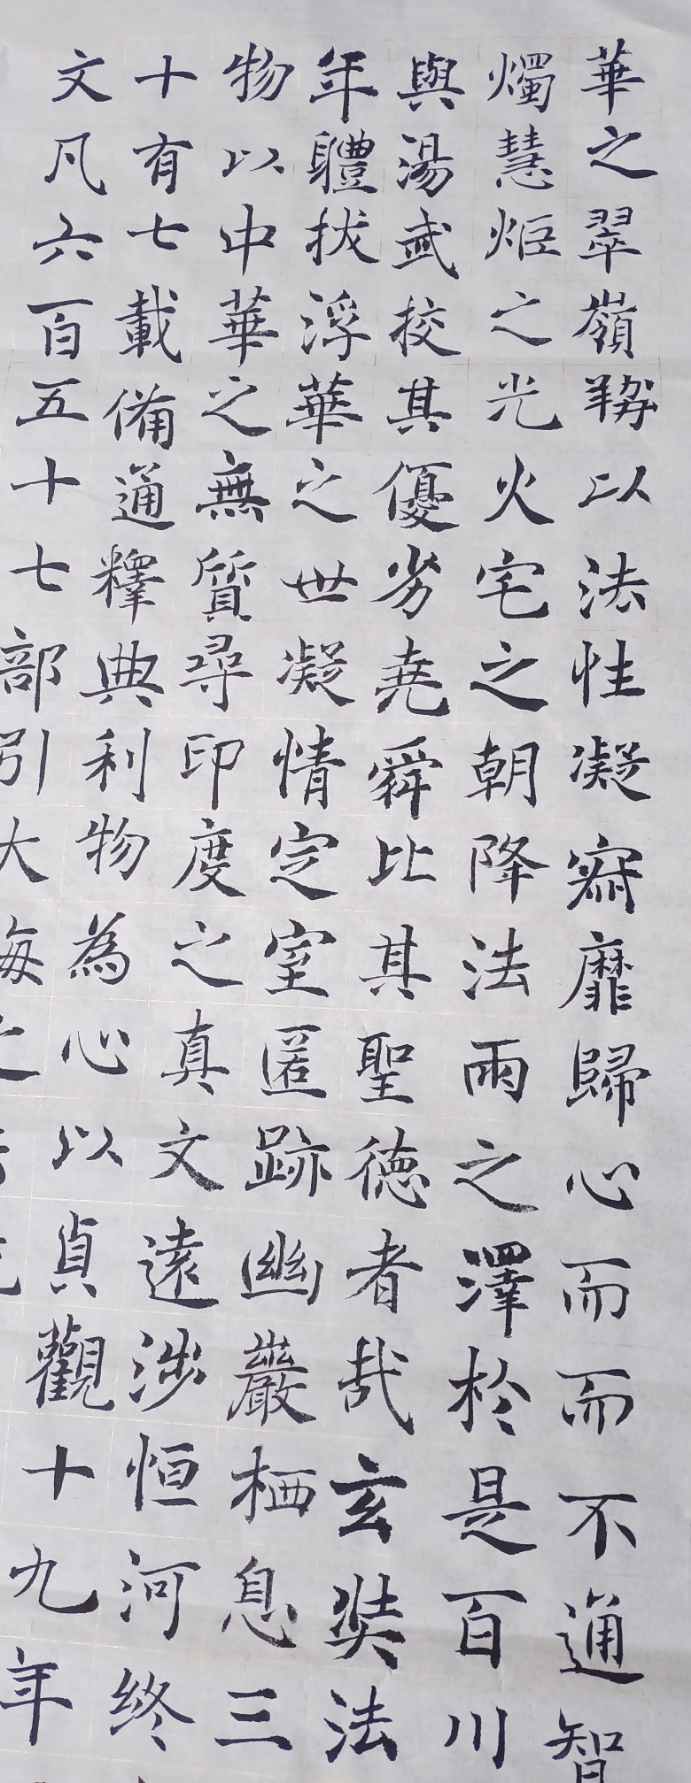 華之翠嶺以法性凝寂靡歸心而而不通智
燭慧炬之光火宅之朝降法雨之澤於是百川
與湯武校其優劣堯舜比其聖德者哉玄奘法
年軆拔浮華之世凝情定室匿跡幽巖栖息三
物以中華之無質尋印度之真文遠涉恒河終
十有七載備通釋典利物為心以貞觀十九年
文凡六百五十七部引大海之